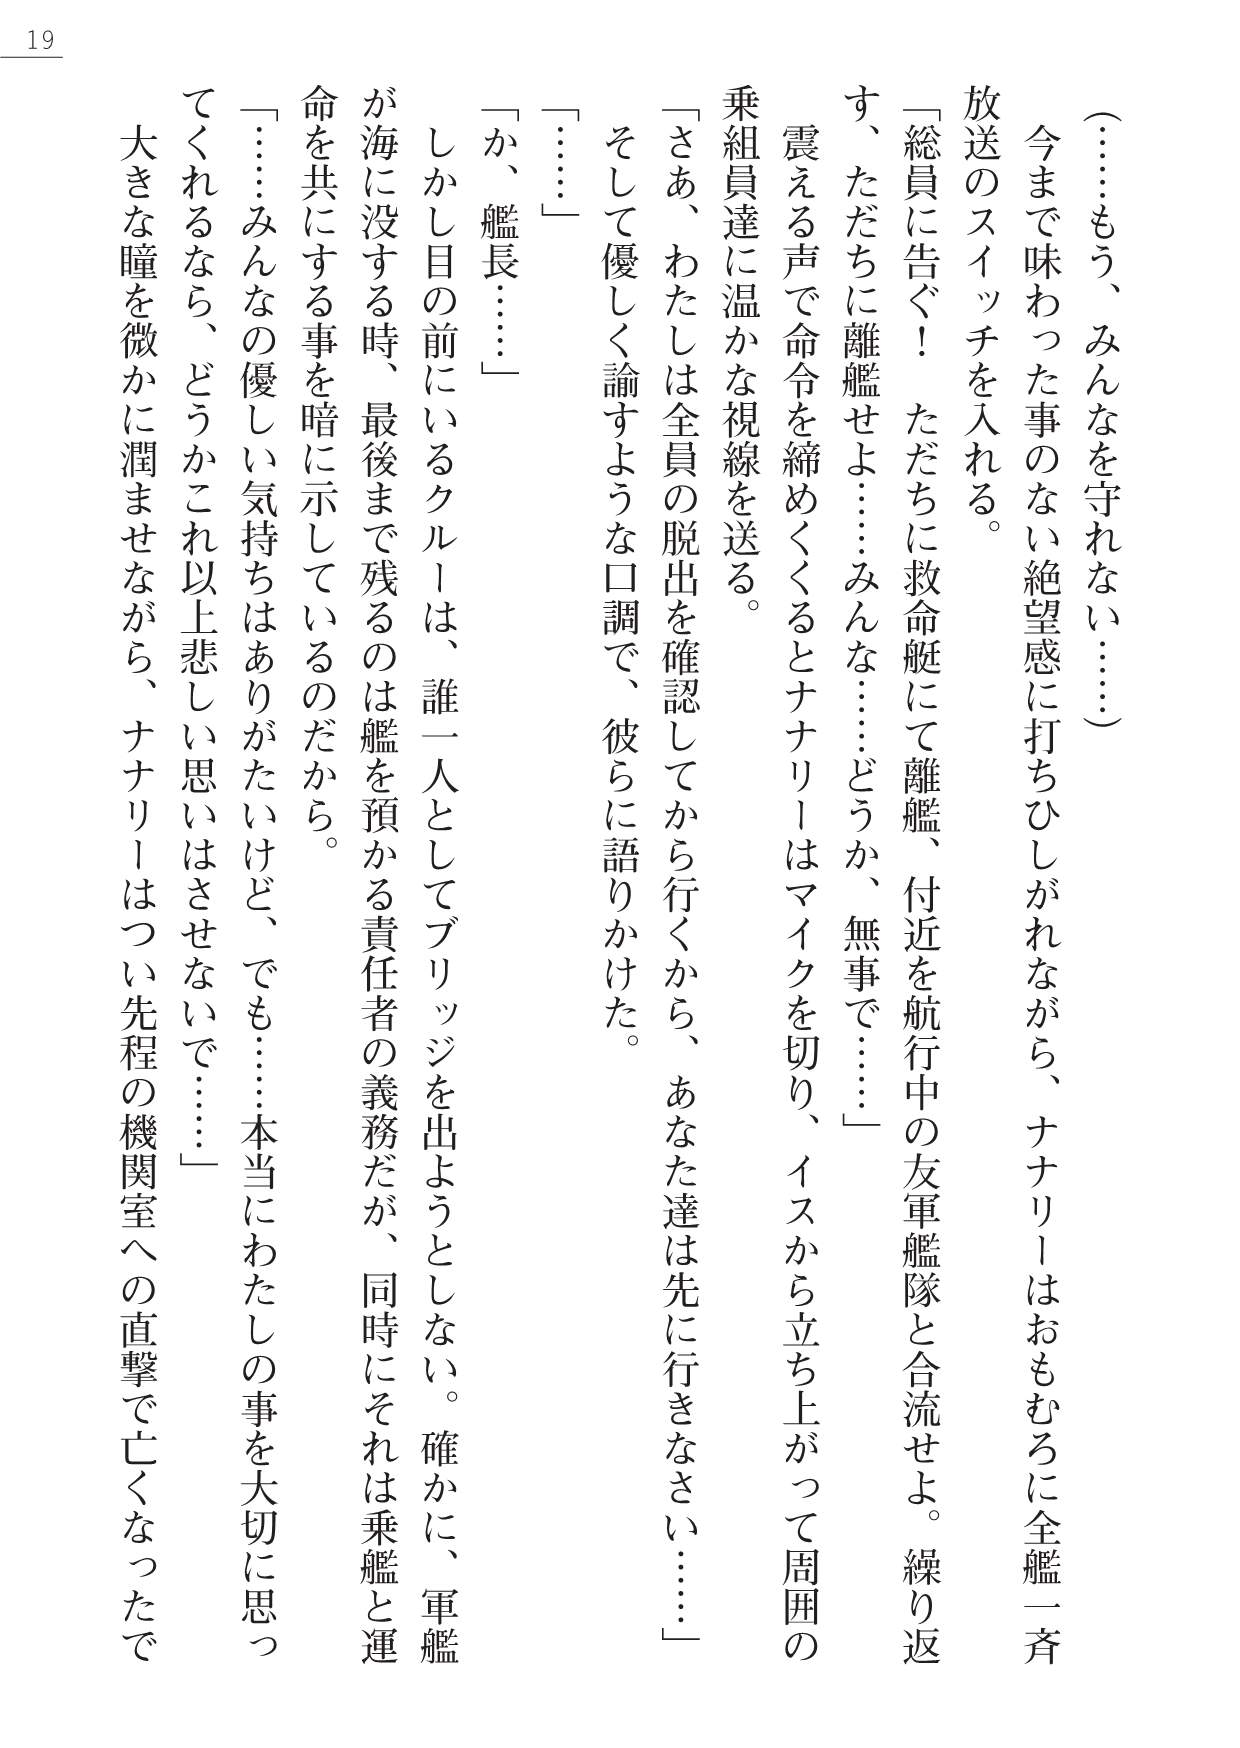 19
（……もう、みんなを守れない……）
　今まで味わった事のない絶望感に打ちひしがれながら、ナナリーはおもむろに全艦一斉
放送のスイッチを入れる。
「総員に告ぐ！　ただちに救命艇にて離艦、付近を航行中の友軍艦隊と合流せよ。繰り返
す、ただちに離艦せよ……みんな……どうか、無事で……」
　震える声で命令を締めくくるとナナリーはマイクを切り、イスから立ち上がって周囲の
乗組員達に温かな視線を送る。
「さあ、わたしは全員の脱出を確認してから行くから、あなた達は先に行きなさい……」
　そして優しく諭すような口調で、彼らに語りかけた。
「……」
「か、艦長……」
　しかし目の前にいるクルーは、誰一人としてブリッジを出ようとしない。確かに、軍艦
が海に没する時、最後まで残るのは艦を預かる責任者の義務だが、同時にそれは乗艦と運
命を共にする事を暗に示しているのだから。
「……みんなの優しい気持ちはありがたいけど、でも……本当にわたしの事を大切に思っ
てくれるなら、どうかこれ以上悲しい思いはさせないで……」
　大きな瞳を微かに潤ませながら、ナナリーはつい先程の機関室への直撃で亡くなったで